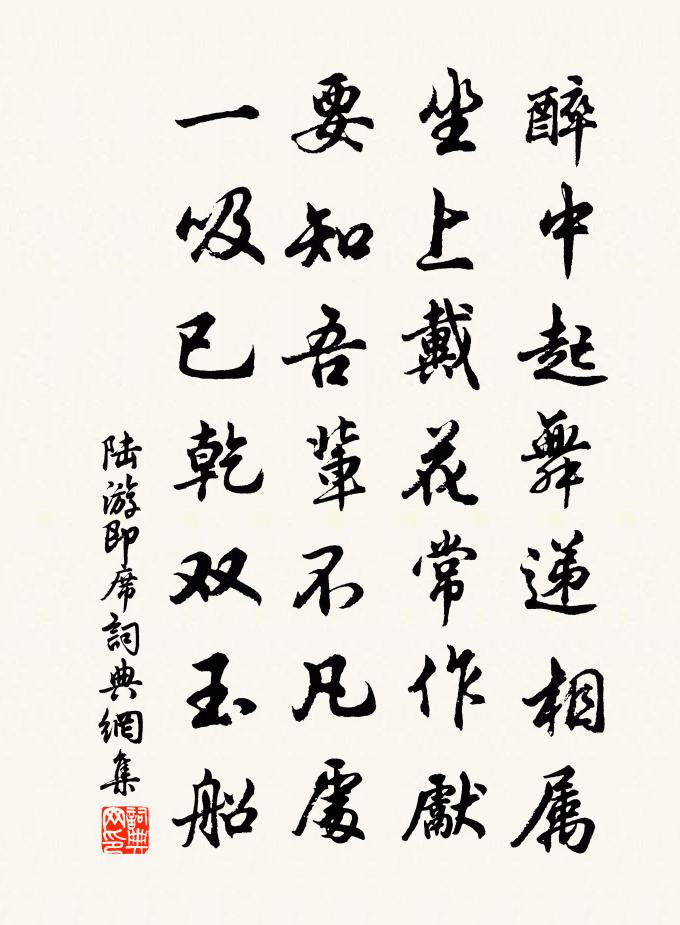 醉中起舞递相属
坐上戴花常作獻
要知吾輩不凡處
一吸已乾双玉船
陸游即席詞典網集
詞典网印